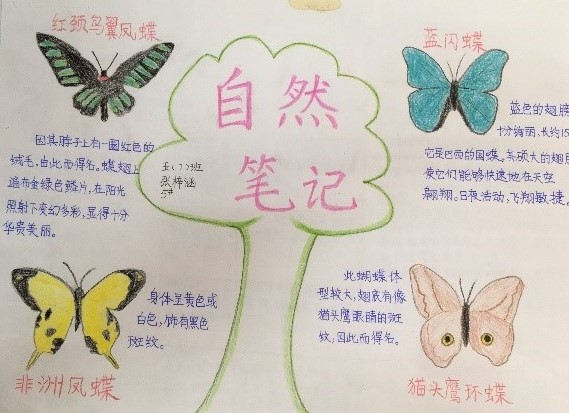 红颈鸟翼凤蝶
因其脖子上有一圈红色的
绒毛，由此而得名。蝶翅上
遍布金绿色鳞片，在阳光
照射下变幻多彩，显得十分
华贵美丽。
自然
笔记
五(7)班
张梓涵
蓝闪蝶
蓝色的翅膀
十分绚丽，长约15
它是巴西的国蝶，其硕大的翅膀
使它们能够快速地在天空
翱翔。日夜活动，飞翔敏捷。
身体呈黄色或
白色，饰有黑色
斑纹。
非洲凤蝶
此蝴蝶体
型较大，翅底有像
猫头鹰眼睛的斑
纹，因此而得名。
猫头鹰环蝶